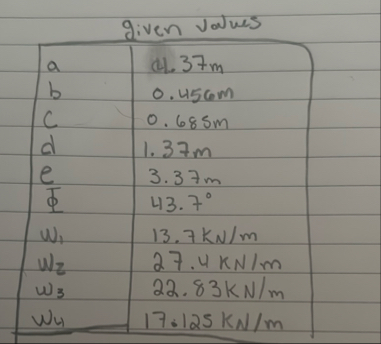 given values
a 4.37m
b 0.456m
c 0.685m
d 1.37m
e 3.37m
Φ 43.7°
W₁ 13.7KN/m
W₂ 27.4KN/m
W₃ 22.83KN/m
W₄ 17.125KN/m